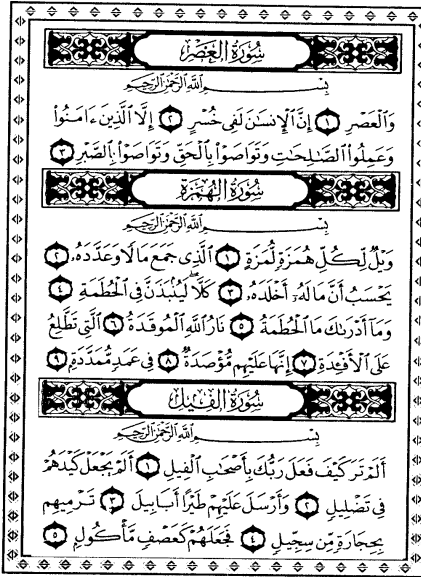 سُورَةُ العَصْرِ
بِسْمِ اللَّهِ الرَّحْمَٰنِ الرَّحِيمِ
وَالْعَصْرِ ١ إِنَّ الْإِنسَانَ لَفِي خُسْرٍ ٢ إِلَّا الَّذِينَ ءَامَنُوا
وَعَمِلُوا الصَّالِحَاتِ وَتَوَاصَوْا بِالْحَقِّ وَتَوَاصَوْا بِالصَّبْرِ ٣
سُورَةُ الهُمَزَةِ
بِسْمِ اللَّهِ الرَّحْمَٰنِ الرَّحِيمِ
وَيْلٌ لِّكُلِّ هُمَزَةٍ لُّمَزَةٍ ١ الَّذِي جَمَعَ مَالًا وَعَدَّدَهُ ٢
يَحْسَبُ أَنَّ مَالَهُ أَخْلَدَهُ ٣ كَلَّا ۖ لَيُنبَذَنَّ فِي الْحُطَمَةِ ٤
وَمَا أَدْرَاكَ مَا الْحُطَمَةُ ٥ نَارُ اللَّهِ الْمُوقَدَةُ ٦ الَّتِي تَطَّلِعُ
عَلَى الْأَفْئِدَةِ ٧ إِنَّهَا عَلَيْهِم مُّؤْصَدَةٌ ٨ فِي عَمَدٍ مُّمَدَّدَةٍ ٩
سُورَةُ الفِيلِ
بِسْمِ اللَّهِ الرَّحْمَٰنِ الرَّحِيمِ
أَلَمْ تَرَ كَيْفَ فَعَلَ رَبُّكَ بِأَصْحَابِ الْفِيلِ ١ أَلَمْ يَجْعَلْ كَيْدَهُمْ
فِي تَضْلِيلٍ ٢ وَأَرْسَلَ عَلَيْهِمْ طَيْرًا أَبَابِيلَ ٣ تَرْمِيهِم
بِحِجَارَةٍ مِّن سِجِّيلٍ ٤ فَجَعَلَهُمْ كَعَصْفٍ مَّأْكُولٍ ٥